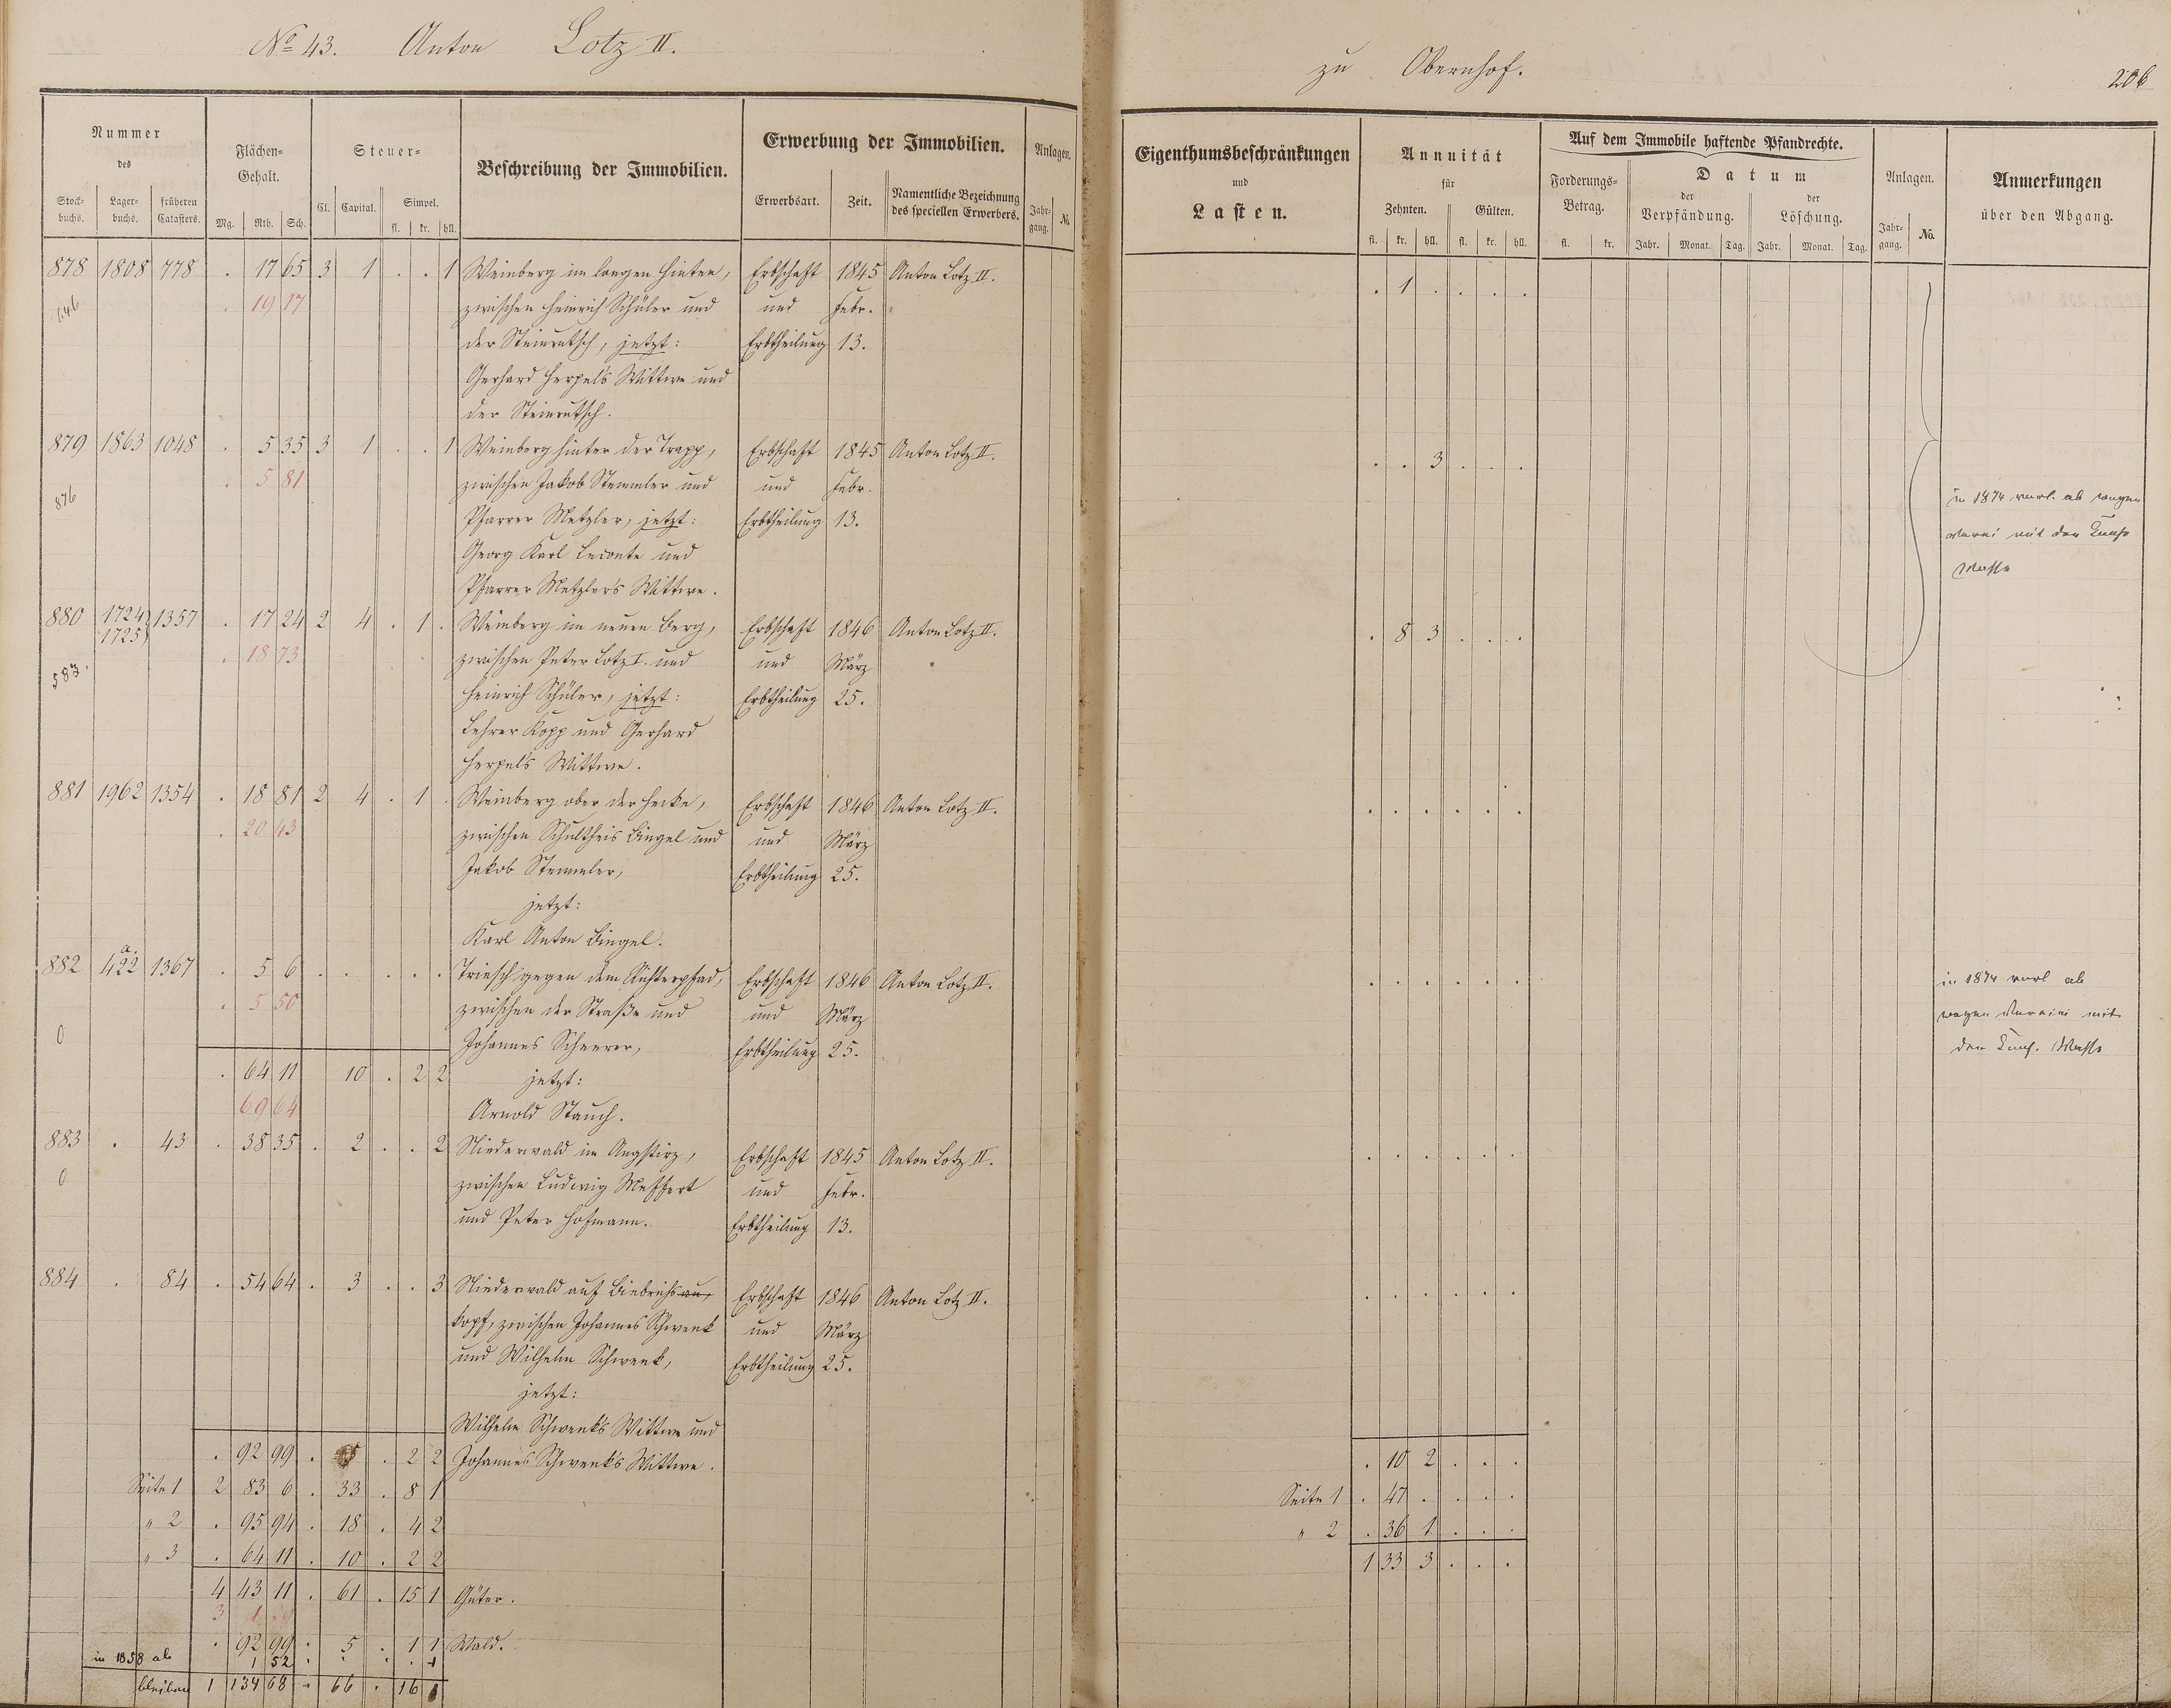 No 43. Anton Lotz II.
zu Obernhof.
206
Nummer
des
Stock-
buchs.
Lager-
buchs.
früheren
Catasters.
Flächen-
Gehalt.
Mg. Rth. Sch.
Steuer-
Cl. Capital. Simpel.
fl. kr. hll.
Beschreibung der Immobilien.
Erwerbung der Immobilien.
Erwerbsart. Zeit. Namentliche Bezeichnung
des speciellen Erwerbers.
Anlagen.
Jahr-
gang. No.
Eigenthumsbeschränkungen
und
Lasten.
Annuität
für
Zehnten. Gülten.
fl. kr. hll. fl. kr. hll.
Auf dem Immobile haftende Pfandrechte.
Forderungs-
Betrag.
fl. kr.
Datum
der
Verpfändung.
der
Löschung.
Jahr. Monat. Tag. Jahr. Monat. Tag.
Anlagen.
Jahr-
gang. No.
Anmerkungen
über den Abgang.
878 1808 778 . 17 65 3 1 . . 1 Weinberg im langen Hinten, Erbschaft 1845 Anton Lotz II. . 1 . . . .
646 . 19 17 zwischen Heinrich Schüler und und Febr.
der Steinrutsch, jetzt: Erbtheilung 13.
Gerhard Herpel's Wittwe und
der Steinrutsch.
879 1863 1048 . 5 35 3 1 . . 1 Weinberg hinter der Trapp, Erbschaft 1845 Anton Lotz II. . . 3 . . .
876 . 5 81 zwischen Jakob Stemmler und und Febr. in 1874 ab wegen
Pfarrer Metzler, jetzt: Erbtheilung 13. mit der
Georg Karl Leconte und Masse
Pfarrer Metzler's Wittwe.
880 1724 1357 . 17 24 2 4 . 1 . Weinberg im neuen Berg, Erbschaft 1846 Anton Lotz II. . 8 3 . . .
1725
583 . 18 73 zwischen Peter Lotz I. und und März
Heinrich Schüler, jetzt: Erbtheilung 25.
Lehrer Kopp und Gerhard
Herpels Wittwe.
881 1962 1354 . 18 81 2 4 . 1 . Weinberg ober der Hecke, Erbschaft 1846 Anton Lotz II. . . . . . .
. 20 43 zwischen Schultheis Bingel und und März
Jakob Stemmler, Erbtheilung 25.
jetzt:
Karl Anton Bingel.
882 a. 422 1367 . 5 6 . . . . . Triesch gegen dem Richterpfad, Erbschaft 1846 Anton Lotz II. . . . . . . in 1874 ab
. 5 50 zwischen der Straße und und März wegen mit
0 Johannes Scheurer, Erbtheilung 25. der Masse
. 64 11 10 . 2 2 jetzt:
69 64 Arnold Stauch.
883 . 43 . 38 35 . 2 . . 2 Niederwald im Angstirz, Erbschaft 1845 Anton Lotz II. . . . . . .
0 zwischen Ludwig Meffert und Febr.
und Peter Hofmann. Erbtheilung 13.
884 . 84 . 54 64 . 3 . . 3 Niederwald auf Biebrichs au, Erbschaft 1846 Anton Lotz II. . . . . . .
kopf, zwischen Johannes Schwenk und März
und Wilhelm Schwenk, Erbtheilung 25.
jetzt:
Wilhelm Schwenk's Wittwe und
. 92 99 . 5 . 2 2 Johannes Schwenk's Wittwe. . 10 2 . . .
Seite 1 2 83 6 . 33 . 8 1 Seite 1 . 47 . . . .
" 2 . 95 94 . 18 . 4 2 " 2 . 36 1 . . .
" 3 . 64 11 . 10 . 2 2 1 33 3 . . .
4 43 11 . 61 . 15 1 Güter.
. 92 99 . 5 . 1 1 Wald.
in 1858 ab 1 52 . . . . 1
bleiben 1 134 68 . 66 . 16